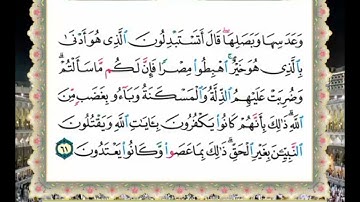 وَعَدَسِهَا وَبَصَلِهَا ۖ قَالَ أَتَسْتَبْدِلُونَ ٱلَّذِى هُوَ أَدْنَىٰ
بِٱلَّذِى هُوَ خَيْرٌ ۚ ٱهْبِطُوا۟ مِصْرًا فَإِنَّ لَكُم مَّا سَأَلْتُمْ ۗ
وَضُرِبَتْ عَلَيْهِمُ ٱلذِّلَّةُ وَٱلْمَسْكَنَةُ وَبَآءُو بِغَضَبٍ مِّنَ
ٱللَّهِ ۗ ذَٰلِكَ بِأَنَّهُمْ كَانُوا۟ يَكْفُرُونَ بِـَٔايَـٰتِ ٱللَّهِ وَيَقْتُلُونَ
ٱلنَّبِيِّـۧنَ بِغَيْرِ ٱلْحَقِّ ۗ ذَٰلِكَ بِمَا عَصَوا۟ وَّكَانُوا۟ يَعْتَدُونَ ٦١